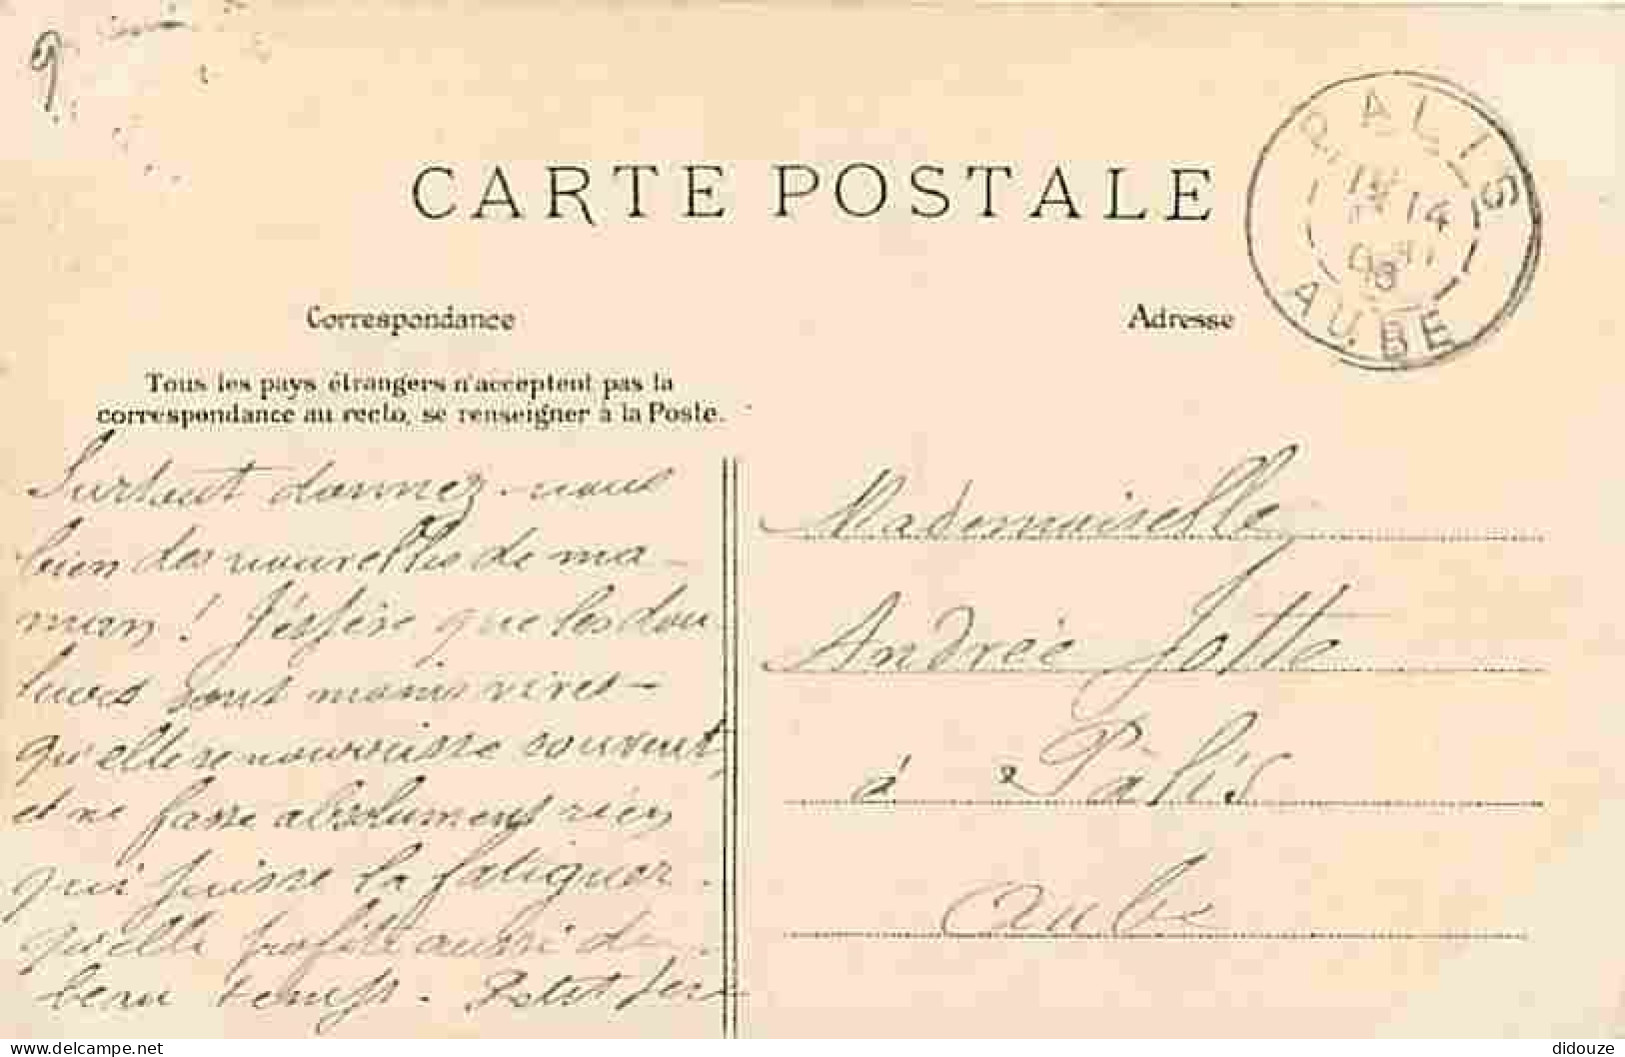 9
CARTE POSTALE
PALIS
14
08
AUBE
Correspondance
Adresse
Tous les pays étrangers n'acceptent pas la
correspondance au recto, se renseigner à la Poste.
Surtout donnez-nous
bien des nouvelles de ma-
man ! J'espère que les dou
leurs sont moins vives -
qu'elle se nourrisse souvent,
et ne fasse absolument rien
qui puisse la fatiguer.
qu'elle profite aussi du
beau temps.
Mademoiselle
Andrée Jotte
à Palis
Aube
delcampe.net
didouze